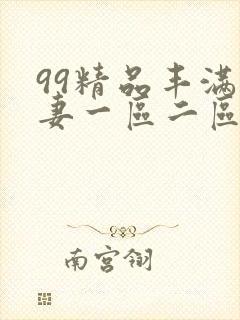 99精品丰满
妻一區二區
南宫翎